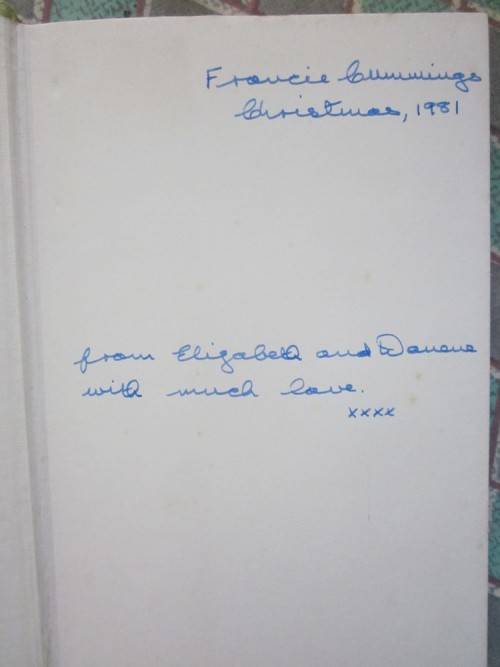 Francie Cummings
Christmas, 1981
from Elizabeth and
with much love.
xxxx